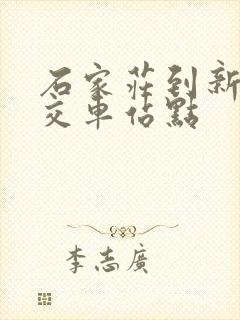 石家莊到新
交車佔點
李志廣